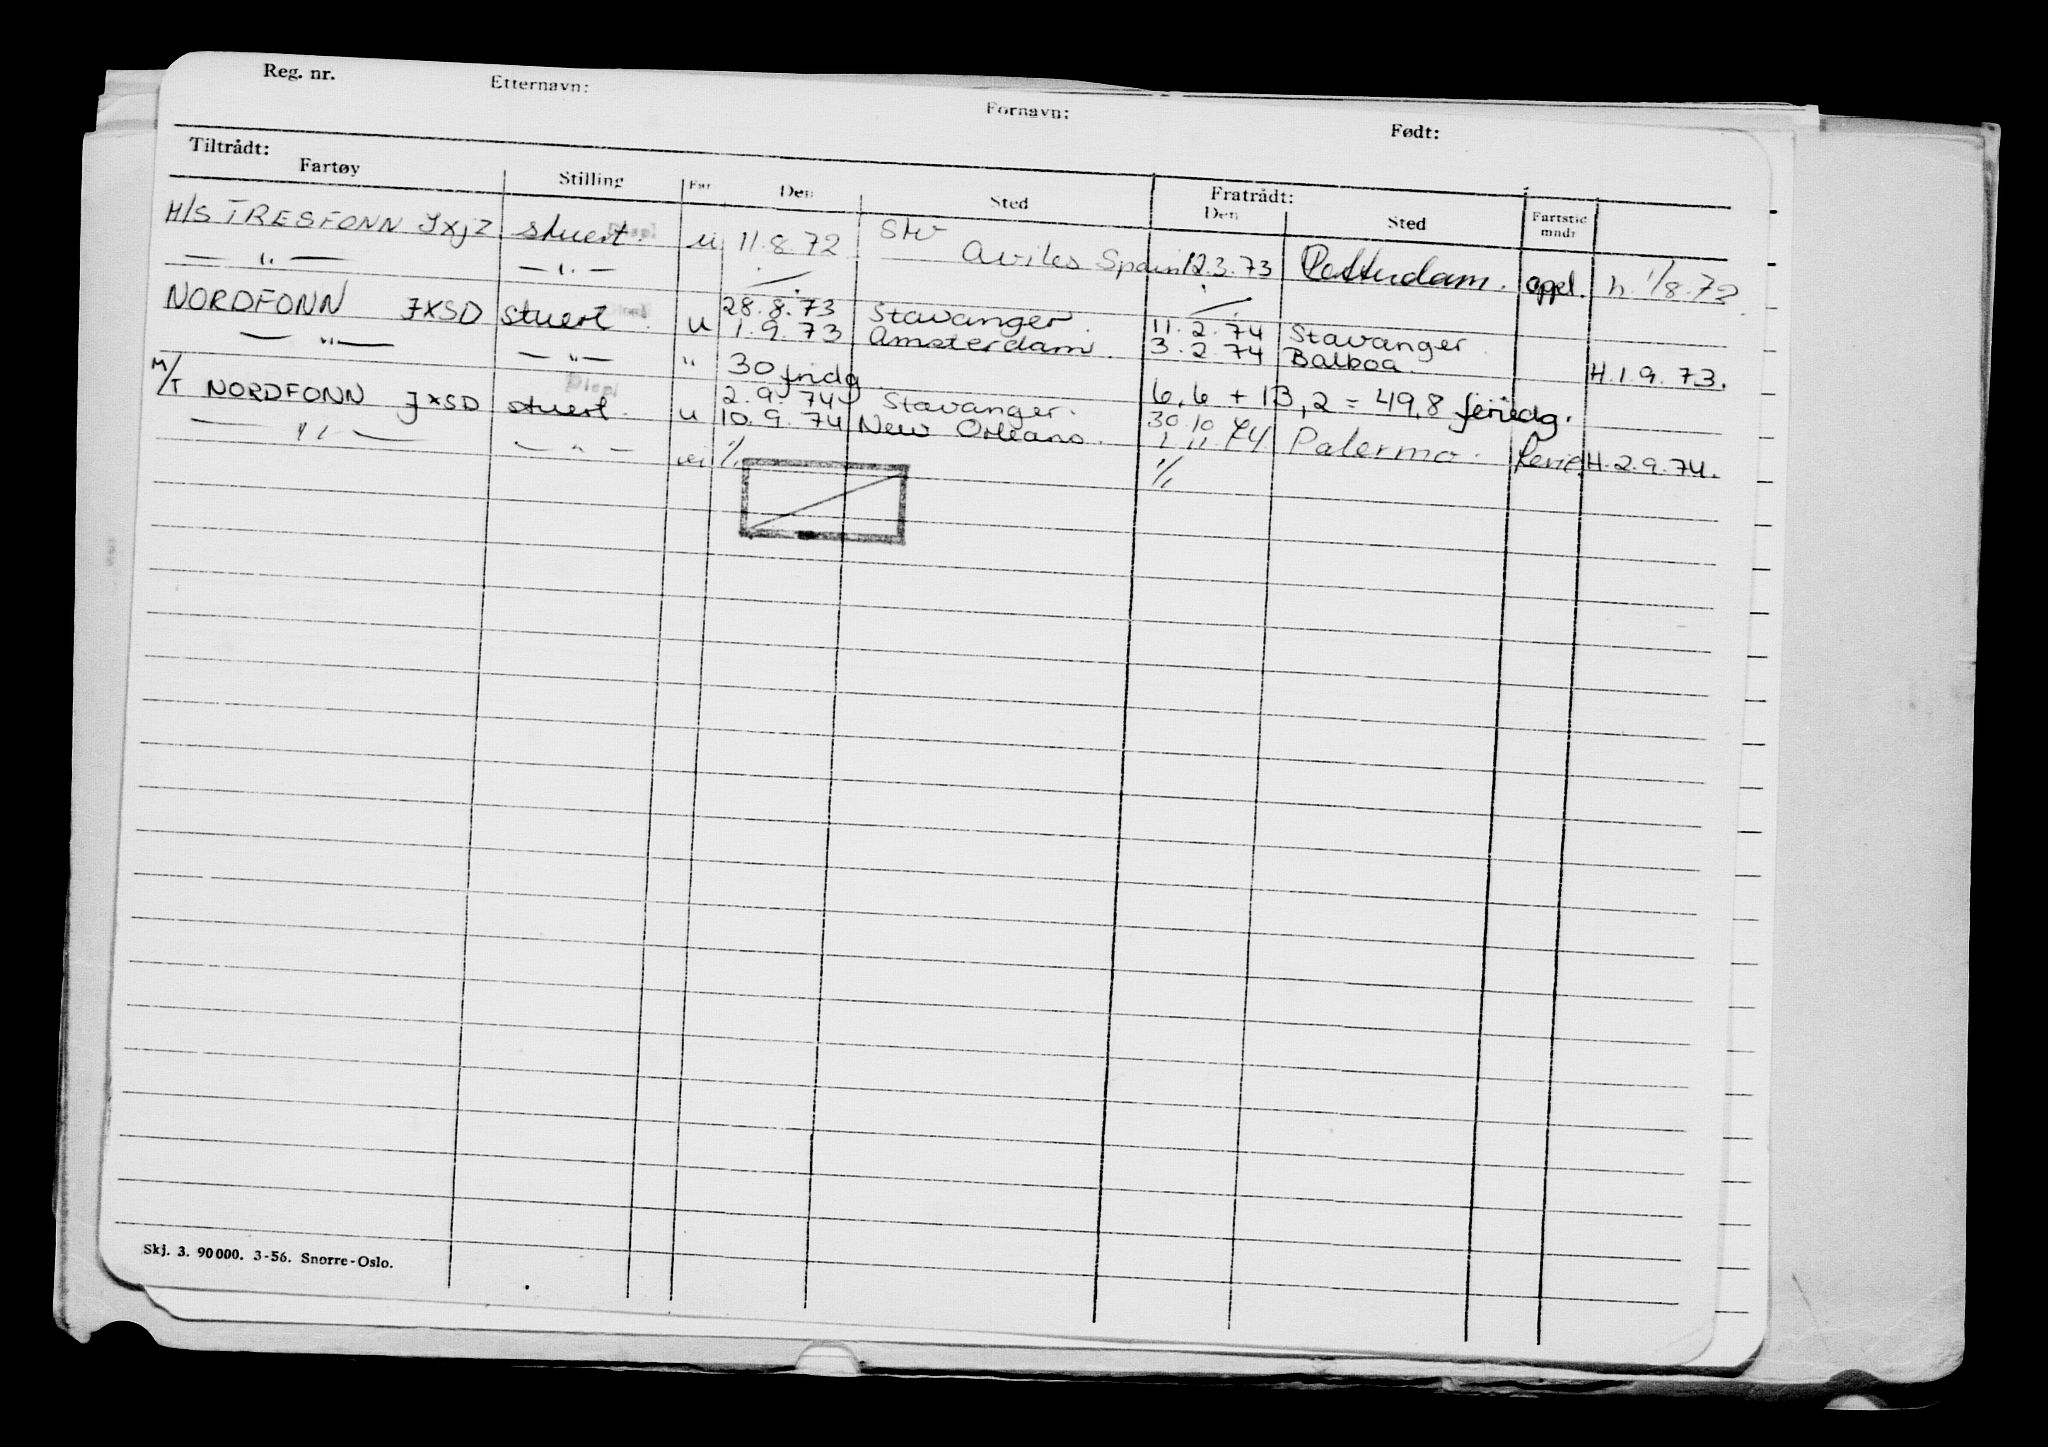 Reg. nr. Etternavn: Fornavn: Født:
Tiltrådt: Fratrådt:
Fartøy Stilling Far Den Sted Den Sted Fartstid mndr
M/S TRESFONN JXJZ stuert. u 11.8.72 Stv Aviles Spain 12.3.73 Rotterdam. oppl. h. 1/8.72
— " — — " —
NORDFONN JXSD stuert u 28.8.73 Stavanger. 11.2.74 Stavanger.
— " — — " — " 1.9.73 Amsterdam. 3.2.74 Balboa. H.1.9.73.
30 fridg. 6,6 + 13,2 = 49,8 feriedg.
M/T NORDFONN JXSD stuert. u 2.9.74 Stavanger. 30.10
— " — — " — 10.9.74 New Orleans. 1.11.74 Palermo. H.2.9.74.
Skj. 3. 90000. 3-56. Snorre-Oslo.